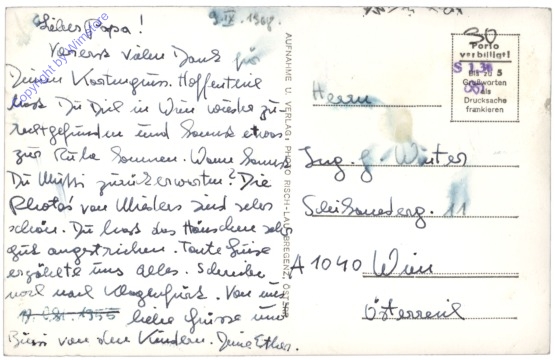 Lieber Papa!
9.IX.1968.
Vorerst vielen Dank für
Deinen Kartengruss. Hoffentlich
hast Du Dich in Wien wieder zu-
rechtgefunden und kannst etwas
zur Ruhe kommen. Wann kannst
Du Mutti zurückerwarten? Die
Photos von Mieders sind sehr
schön. Du hast das Häuschen sehr
gut angestrichen. Tante Luise
erzählte uns alles. Schreibe
noch nach Klagenfurt. Von uns
liebe Grüsse und
Bussi von den Kindern. Deine Esther.
copyright by Wimpiore
AUFNAHME U. VERLAG: PHOTO RISCH-LAU, BREGENZ, ÖSTERR.
30
Porto
verbilligt!
Bis zu 5
Grußworten
als
Drucksache
frankieren
S 1.30
Herrn
Ing. J. Winter
Schikanederg. 11
A 1040 Wien
Österreich